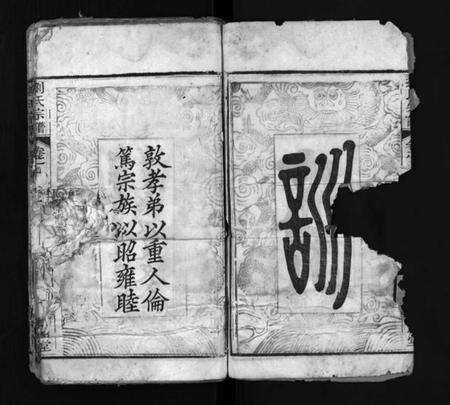 訓
敦孝弟以重人倫
篤宗族以昭雍睦
劉氏宗譜
卷二
堂